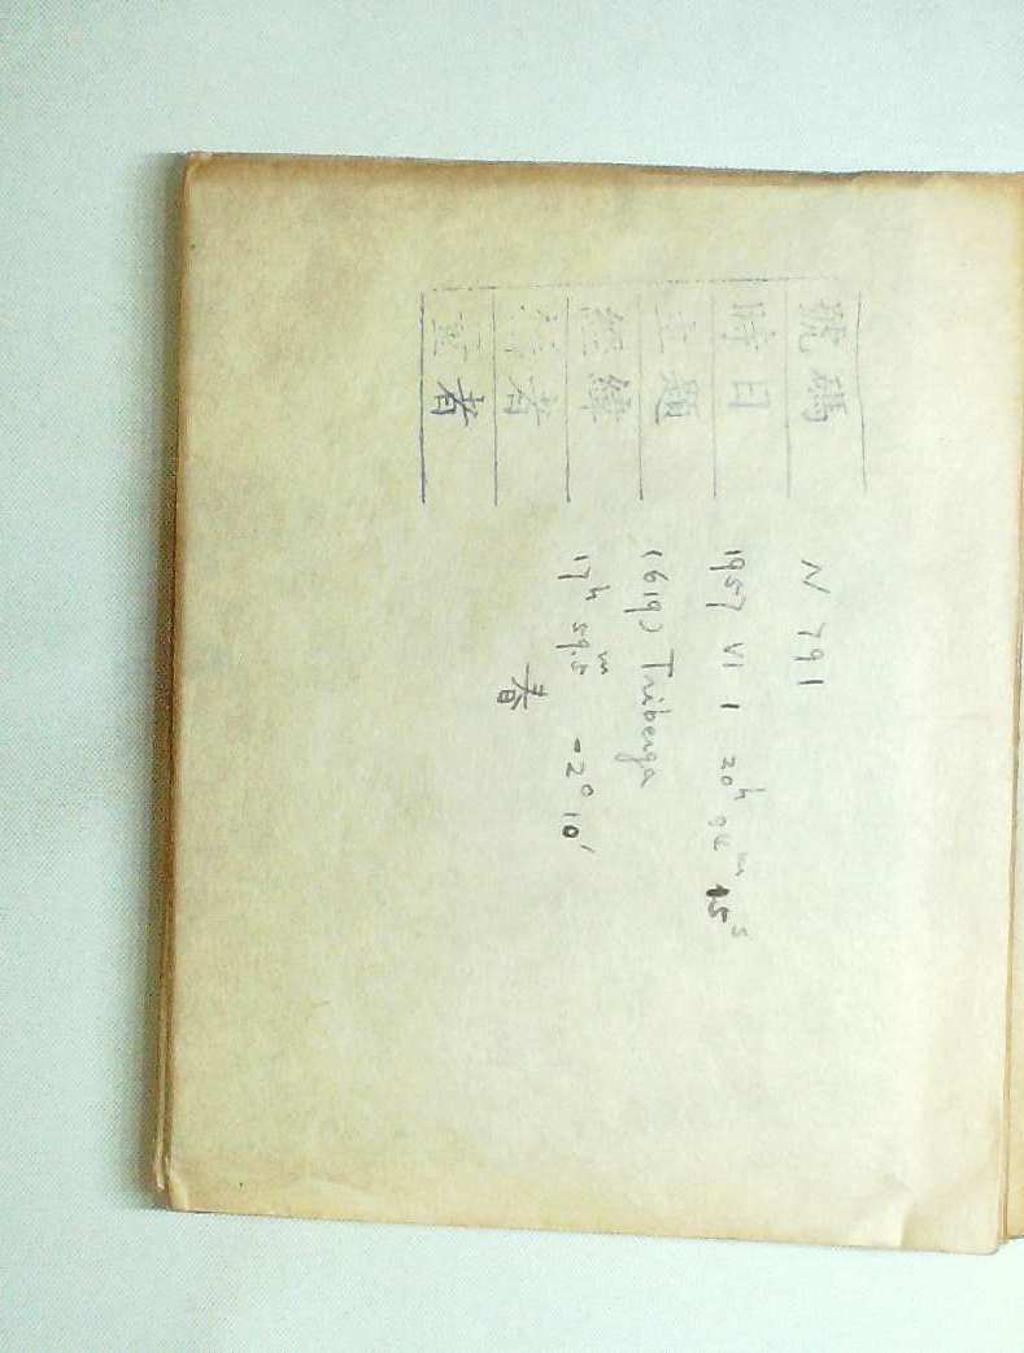 號碼 N 791
時日 1957 VI 1 20ʰ 15ˢ
主題 (619) Triberga
經緯 17ʰ 59ᵐ.5 -2° 10′
者 春
者